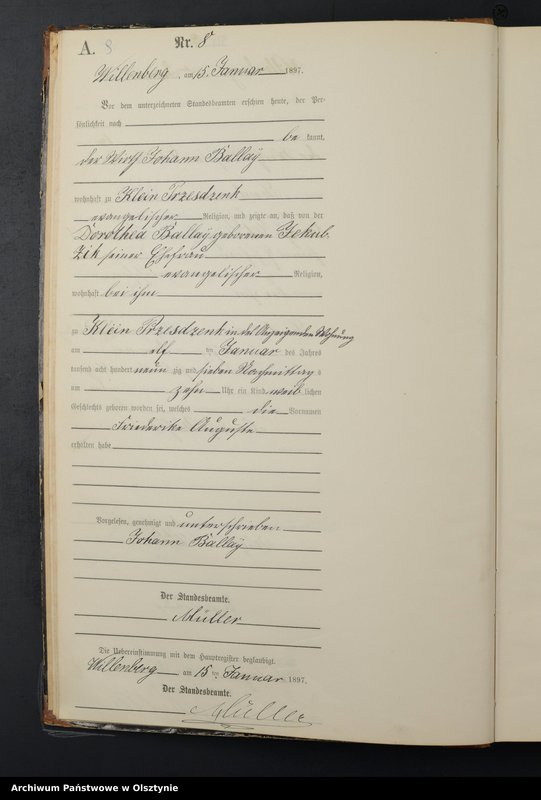 A. 8 Nr. 8
Willenberg, am 15. Januar 1897.
Vor dem unterzeichneten Standesbeamten erschien heute, der Per-
sönlichkeit nach
be kannt,
der Wirth Johann Ballay
wohnhaft zu Klein Przesdzenk
evangelischer Religion, und zeigte an, daß von der
Dorothea Ballay geborenen Jekub-
zik seiner Ehefrau
evangelischer Religion,
wohnhaft bei ihm
zu Klein Przesdzenk in des Anzeigenden Wohnung
am elf ten Januar des Jahres
tausend acht hundert neun zig und sieben Nachmittag s
um zehn Uhr ein Kind weib lichen
Geschlechts geboren worden sei, welches die Vornamen
Friederike Auguste
erhalten habe
Vorgelesen, genehmigt und unterschrieben
Johann Ballay
Der Standesbeamte.
Müller
Die Uebereinstimmung mit dem Hauptregister beglaubigt.
Willenberg am 15. ten Januar 1897.
Der Standesbeamte.
Müller
Archiwum Państwowe w Olsztynie